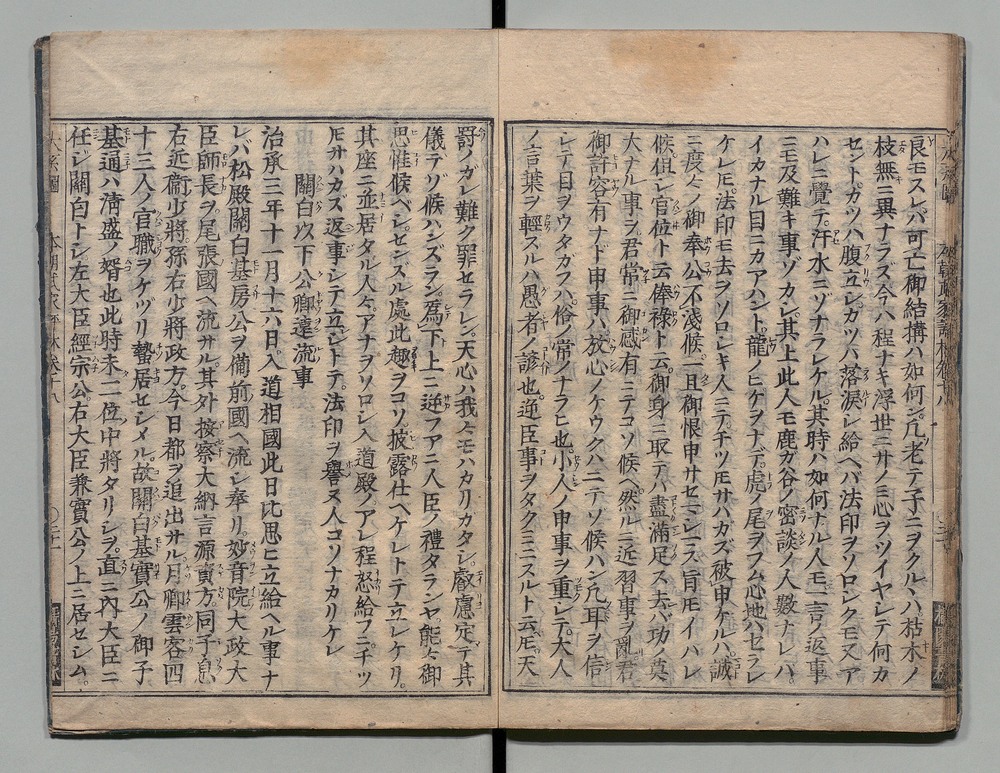 良モスレバ可亡御結搆ハ如何ン凢老テ子ニヲクルヽハ枯木ノ
枝無ニ異ナラズ今ハ程ナキ浮世ニサノミ心ヲツイヤシテ何カ
セントガツハ腹立シガツハ落涙シ給ヘバ法印ヲソロシクモ又ア
ハレニ覺テ汗水ニゾナラレケル其時ハ如何ナル人モ一言ノ返事
ニモ及難キ事ゾカシ其上此人モ鹿ガ谷ノ密談ノ人數ナレバ
イカナル目ニカアハント龍ノヒゲヲナデ虎ノ尾ヲフム心地ハセラレ
ケレ𪜈法印モ去ヲソロシキ人ニテチツ𪜈サハガズ被申ケルハ誠
ニ度々ノ御奉公不淺候一旦御恨申サセマシマス旨𪜈イハレ
候但シ官位ト云俸祿ト云御身ニ取テハ盡滿足ス去バ功ノ莫
大ナル事ヲ君常ニ御感有ニテコソ候ヘ然ルニ近習事ヲ亂君
御許容有ナド申事ハ放心ノケウクハニテゾ候ハン凢耳ヲ信
シテ目ヲウタガフハ俗ノ常ノナラヒ也小人ノ申事ヲ重シテ大人
ノ言葉ヲ輕スルハ愚者ノ諺也逆臣事ヲタクミニスルト云𪜈天
罸ノガレ難ク罪セラレ天心ハ我々モハカリカタシ叡慮定テ其
儀テゾ候ハンズラン爲下上ニ逆フアニ人臣ノ禮タランヤ能々御
思惟候ベシセンスル處此趣ヲコソ披露仕ヘケレトテ立レケリ
其座ニ並居タル人々アナヲソロシ入道殿ノアレ程怒給フニチツ
𪜈サハカズ返事シテ立シトテ法印ヲ譽ヌ人コソナカリケレ
關白以下公卿遠流事
治承三年十一月十六日入道相國此日比思ヒ立給ヘル事ナ
レバ松殿關白基房公ヲ備前國ヘ流シ奉リ妙音院大政大
臣師長ヲ尾張國ヘ流サル其外按察大納言源資方同子息
右近衞少將孫右少將政方今日都ヲ追出サル月卿雲客四
十三人ノ官職ヲケヅリ蟄居セシメル故關白基實公ノ御子
基通ハ淸盛ノ婿也此時未二位中將タリシヲ直ニ內大臣ニ
任シ關白トシ左大臣經宗公右大臣兼實公ノ上ニ居セシム